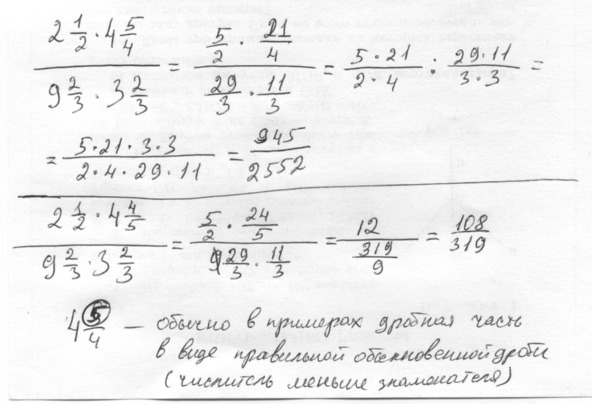 (2 1/2 · 4 5/4)/(9 2/3 · 3 2/3) = (5/2 · 21/4)/(29/3 · 11/3) = (5·21)/(2·4) : (29·11)/(3·3) =
= (5·21·3·3)/(2·4·29·11) = 945/2552
(2 1/2 · 4 4/5)/(9 2/3 · 3 2/3) = (5/2 · 24/5)/(29/3 · 11/3) = 12/(319/9) = 108/319
4 5/4 — обычно в примерах дробная часть
в виде правильной обыкновенной дроби
(числитель меньше знаменателя)